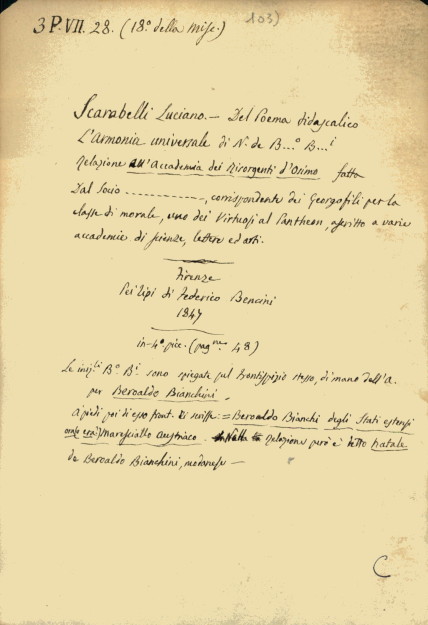 103)
3 P. VII. 28. (18.° della Misc.)
Scarabelli Luciano. — Del Poema didascalico
L'Armonia universale di N. de B...° B...i
Relazione all'Accademia dei Risorgenti d'Osimo fatta
Dal Socio - - - - - - - - - - -, corrispondente dei Georgofili per la
classe di morale, uno dei Virtuosi al Pantheon, ascritto a varie
accademie di scienze, lettere ed arti.
Firenze
Pei tipi di Federico Bencini
1847
in-4° picc. (pagne. 48)
Le iniz.li B.° B.i sono spiegate sul frontispizio stesso, di mano dell'A.
per Beroaldo Bianchini.
A piedi poi di esso front. si scrisse := Beroaldo Bianchi degli Stati estensi
Maresciallo austriaco. Nella Relazione però è detto natale
de Beroaldo Bianchini, modanese —
C